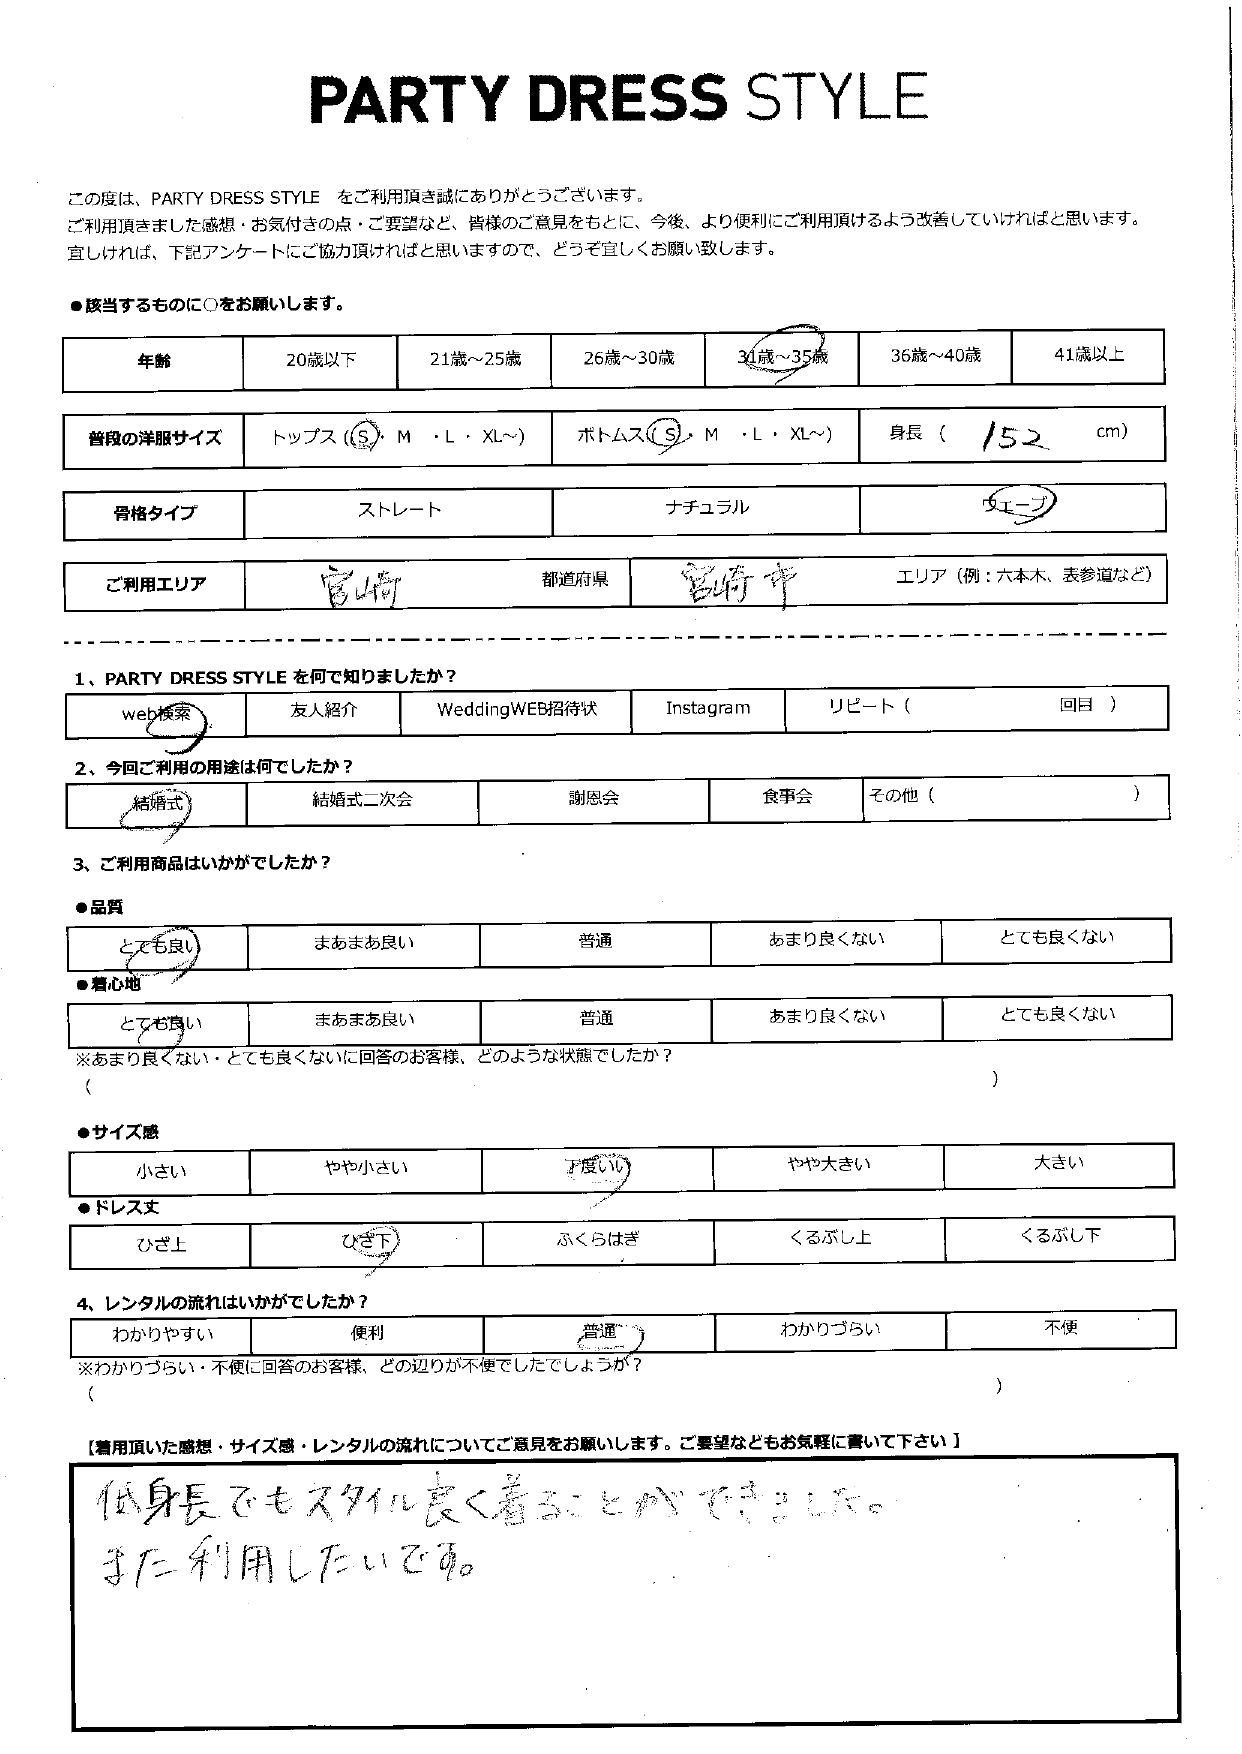 PARTY DRESS STYLE
この度は、PARTY DRESS STYLE をご利用頂き誠にありがとうございます。
ご利用頂きました感想・お気付きの点・ご要望など、皆様のご意見をもとに、今後、より便利にご利用頂けるよう改善していければと思います。
宜しければ、下記アンケートにご協力頂ければと思いますので、どうぞ宜しくお願い致します。
●該当するものに○をお願いします。
年齢 20歳以下 21歳～25歳 26歳～30歳 31歳～35歳 36歳～40歳 41歳以上
普段の洋服サイズ トップス (S・ M ・L ・ XL～) ボトムス( S ・ M ・L ・ XL～) 身長 ( 152 cm)
骨格タイプ ストレート ナチュラル ウェーブ
ご利用エリア 宮崎 都道府県 宮崎市 エリア（例：六本木、表参道など）
1、PARTY DRESS STYLE を何で知りましたか？
web検索 友人紹介 WeddingWEB招待状 Instagram リピート（ 回目 ）
2、今回ご利用の用途は何でしたか？
結婚式 結婚式二次会 謝恩会 食事会 その他（ ）
3、ご利用商品はいかがでしたか？
●品質
とても良い まあまあ良い 普通 あまり良くない とても良くない
●着心地
とても良い まあまあ良い 普通 あまり良くない とても良くない
※あまり良くない・とても良くないに回答のお客様、どのような状態でしたか？
（ ）
●サイズ感
小さい やや小さい 丁度いい やや大きい 大きい
●ドレス丈
ひざ上 ひざ下 ふくらはぎ くるぶし上 くるぶし下
4、レンタルの流れはいかがでしたか？
わかりやすい 便利 普通 わかりづらい 不便
※わかりづらい・不便に回答のお客様、どの辺りが不便でしたでしょうか？
（ ）
【着用頂いた感想・サイズ感・レンタルの流れについてご意見をお願いします。ご要望などもお気軽に書いて下さい 】
低身長でもスタイル良く着ることができました。
また利用したいです。